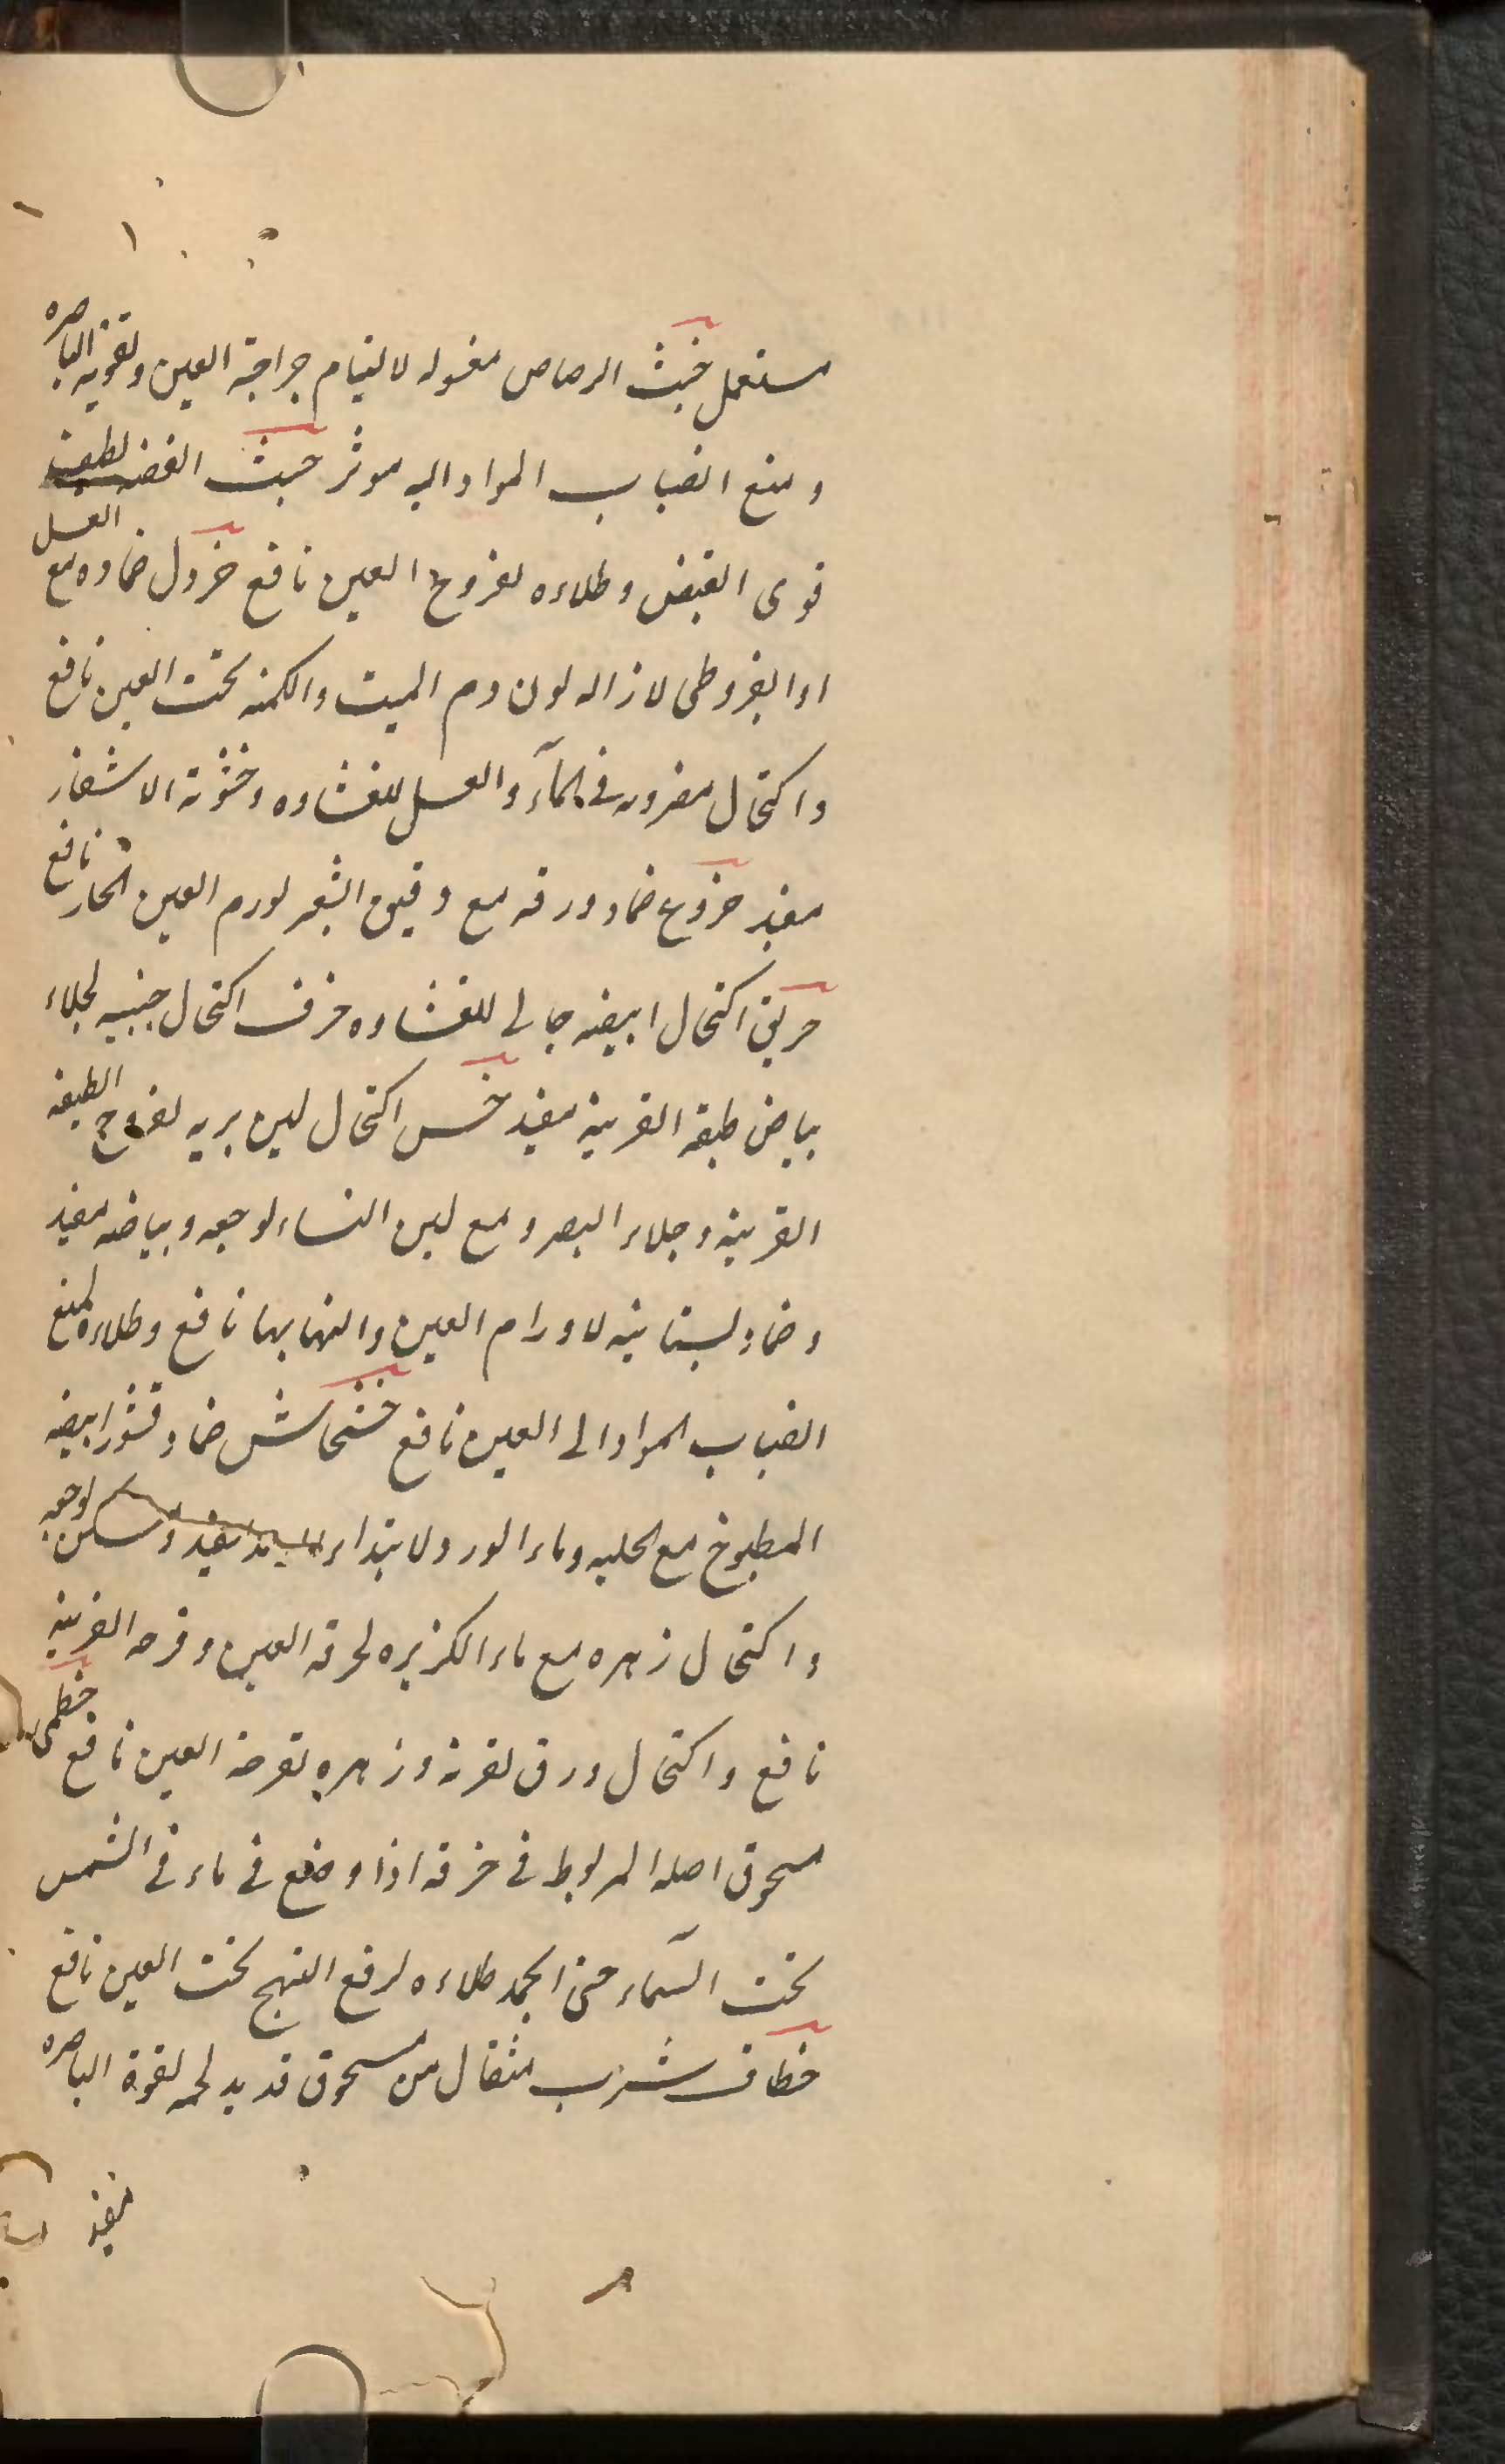 مستعمل خبث الرصاص مغسوله لالتيام جراحة العين وتقوية الباصره
ومنع انصباب المواد اليه موثر خبث الفضه لطيف
قوى القبض وطلاءه لقروح العين نافع خردل ضماده مع العسل
او القيروطى لازاله لون دم الميت والكمنه تحت العين نافع
واكتحال مضروبه فى المآء والعسل للغشاوه وخشونة الاشفار
مفيد خروع ضماد ورقه مع دقيق الشعير لورم العين الحار نافع
خربق اكتحال ابيضه جالى للغشاوه خزف اكتحال جنبيه لجلاء
بياض طبقة القرنية مفيد خس اكتحال لبن بريه لقروح الطبقه
القرنية وجلاء البصر ومع لبن النساء لوجعه وبياضه مفيد
وضماد بستانيه لاورام العين والتهابها نافع وطلاءه لمنع
انصباب المواد الى العين نافع خشخاش ضماد قشر ابيضه
المطبوخ مع الحلبه وماء الورد لابتداء الرمد مفيد ومسكن لوجعه
واكتحال زهره مع ماء الكزبره لحرقة العين وقرحه القرنية
نافع واكتحال ورق لقرنه وزهره لقرحة العين نافع خطمى
مسحوق اصله المربوط فى خرقه اذا وضع فى ماء فى الشمس
تحت السمآء حتى انجمد طلاءه لرفع التهبج تحت العين نافع
خطاف شرب مثقال من مسحوق قديد لحمه لقوة الباصره
مفيد